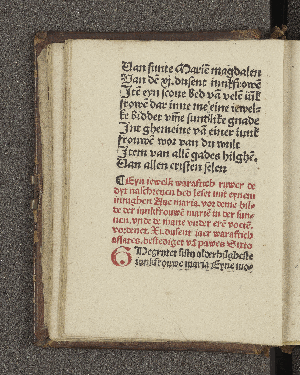 Van sunte Mariē magdalen
Van dē xj. dusent iunkfrowē
Itē eyn scone bed vā velē iūk
frowē dar inne me eine iewel⸗
ke biddet vm̄e sunt like gnade
Int ghemeine vā einer iunk
frouwē wor van du wult
Item van allē gades hilghē.
Van allen cristen selen
¶ Eyn iewelk warafrich ruwer de
dyt naschreuen bed leset mit eynem
innighen Aue maria. vor deme bil⸗
de der iunkfrouwē marie in der sun⸗
nen, vnde de mane vnder erē votē.
vordenet. Xi. dusent iaer warafrich
aflates. bestediget vā pawes Sixto
Gegrotet sistu alder hilgheste
iunkfrouwe maria Eyne mo⸗